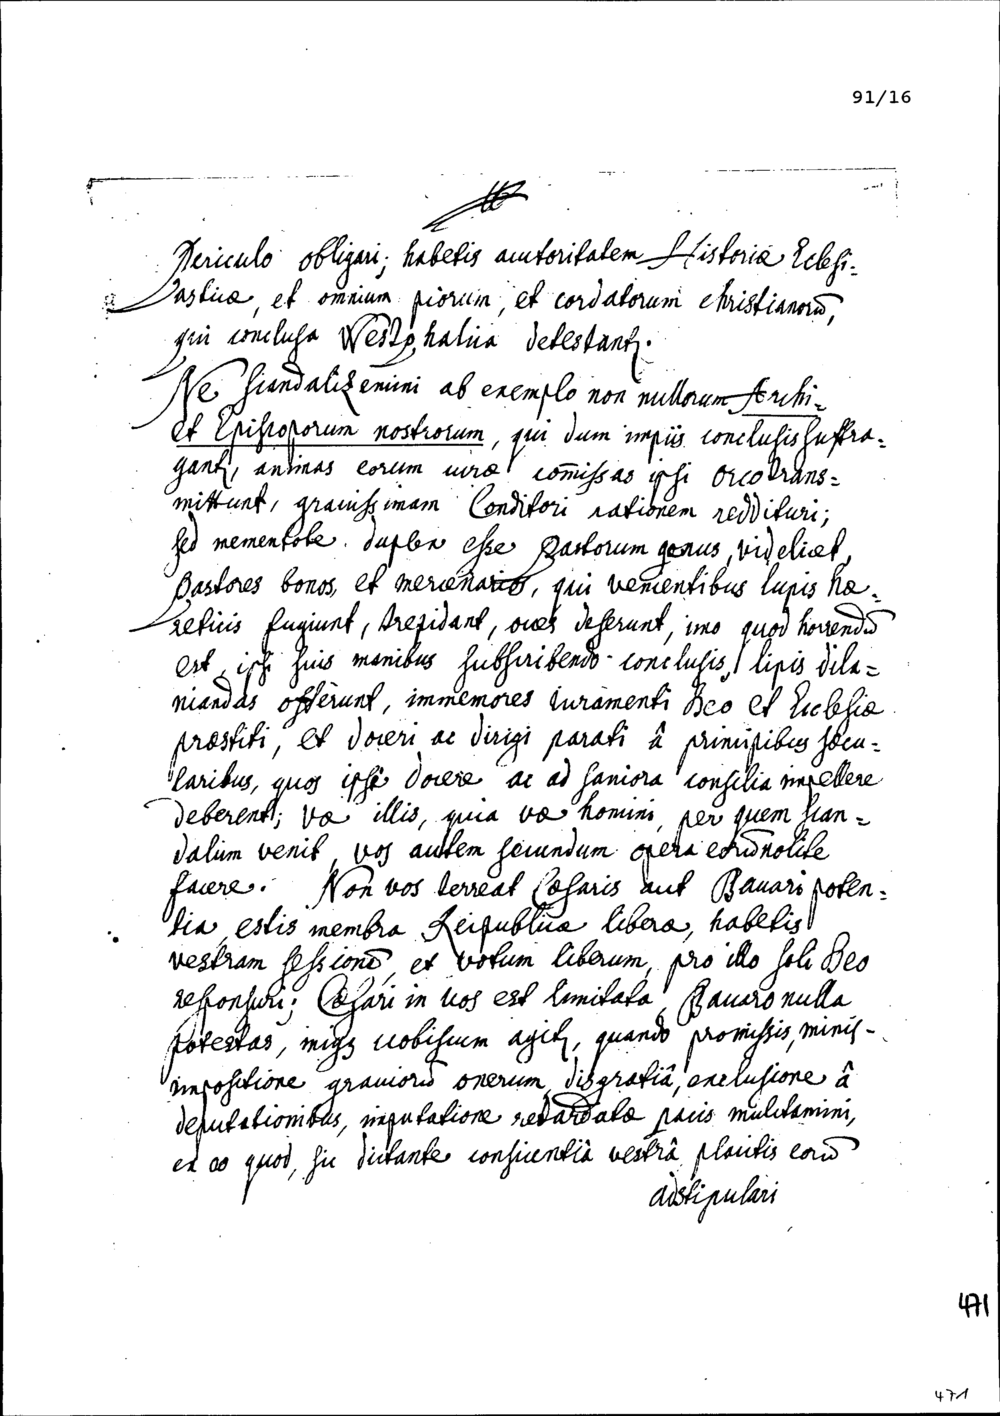 91/16
Periculo obligari; habetis autoritatem Historiæ Eclesi=
asticæ, et omnium piorum, et cordatorum christianorū,
qui conclusa Westphalica detestantꝛ.
Ne scandalizemini ab exemplo non nullorum Archi=
et Episcoporum nostrorum, qui dum impiis conclusis suffra=
gantꝛ, animas eorum curæ com̄issas ipsi orco trans=
mittunt, grauissimam Conditori rationem reddituri;
sed mementote duplex esse Pastorum genus, videlicet,
Pastores bonos, et mercenarios, qui venientibus lupis hæ=
reticis fugiunt, trepidant, oues deserunt, imo quod horrendū
est, ipsi suis manibus subscribendo conclusis, lupis dila=
niandas offerunt, immemores iuramenti Deo et Ecclesiæ
præstiti, et doceri ac dirigi parati â principibus sæcu=
laribus, quos ipsi docere ac ad saniora consilia impellere
deberent; væ illis, quia væ homini, per quem scan=
dalum venit, vos autem secundum opera eorū nolite
facere. Non vos terreat Cæsaris aut Bauari poten=
tia, estis membra Reipublicæ liberæ, habetis
vestram sessionē, et votum liberum, pro illo soli Deo
responsuri; Cæsari in uos est limitata, Bauaro nulla
potestas, iniqꝫ uobiscum agitꝛ, quando promissis, minis,
impositione grauiorū onerum, disgratiâ, exclusione â
deputationibus, imputatione retardatæ pacis mulctamini,
ex eo quod, sic dictante conscientiâ vestrâ, placitis eorū
adstipulari
471
471